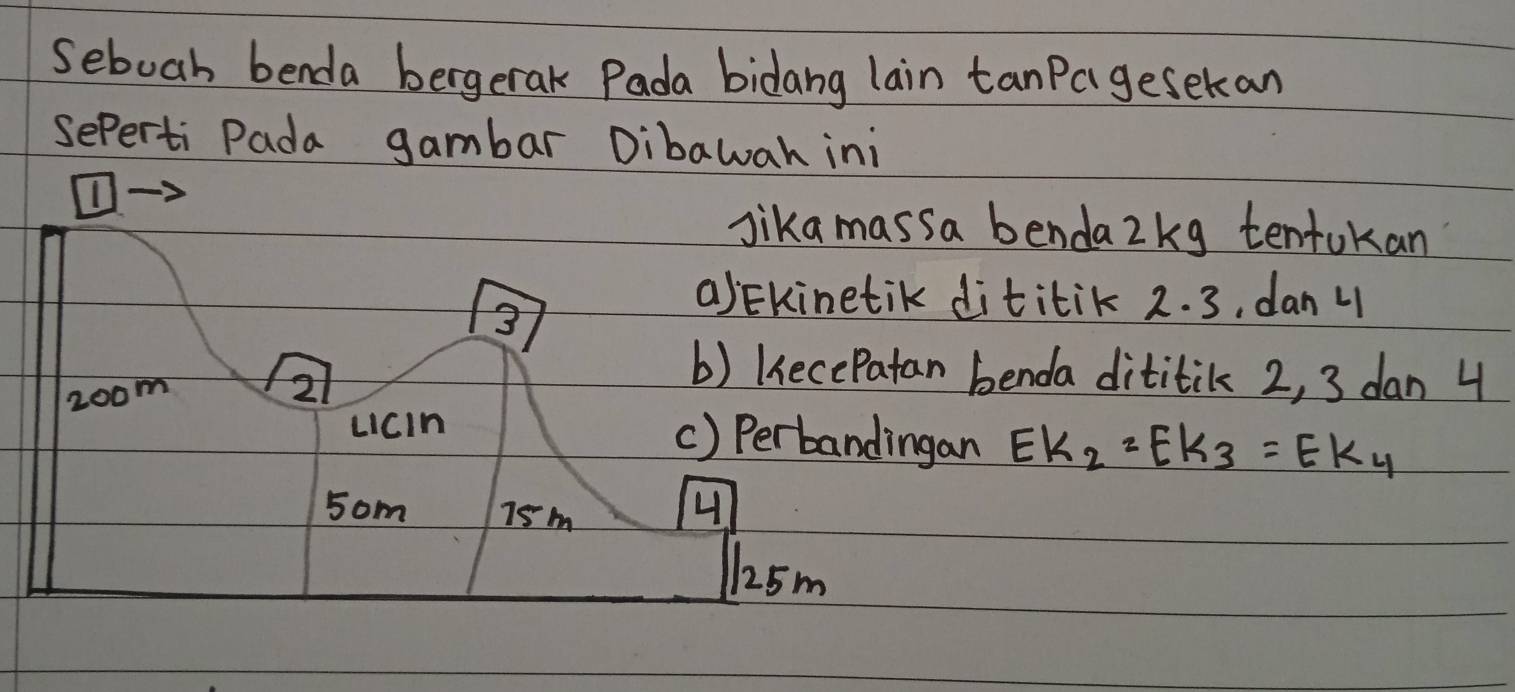 Sebuah benda bergerak Pada bidang lain tanPa gesekan
SePerti Pada gambar Dibawah ini
1
Jika massa benda 2kg tentukan
a) Ekinetik di titik 2.3, dan 4
3
b) KecePatan benda dititik 2, 3 dan 4
2
200 m
LICIN
c) Perbandingan EK2 = EK3 = EK4
50m
75 m
4
25 m